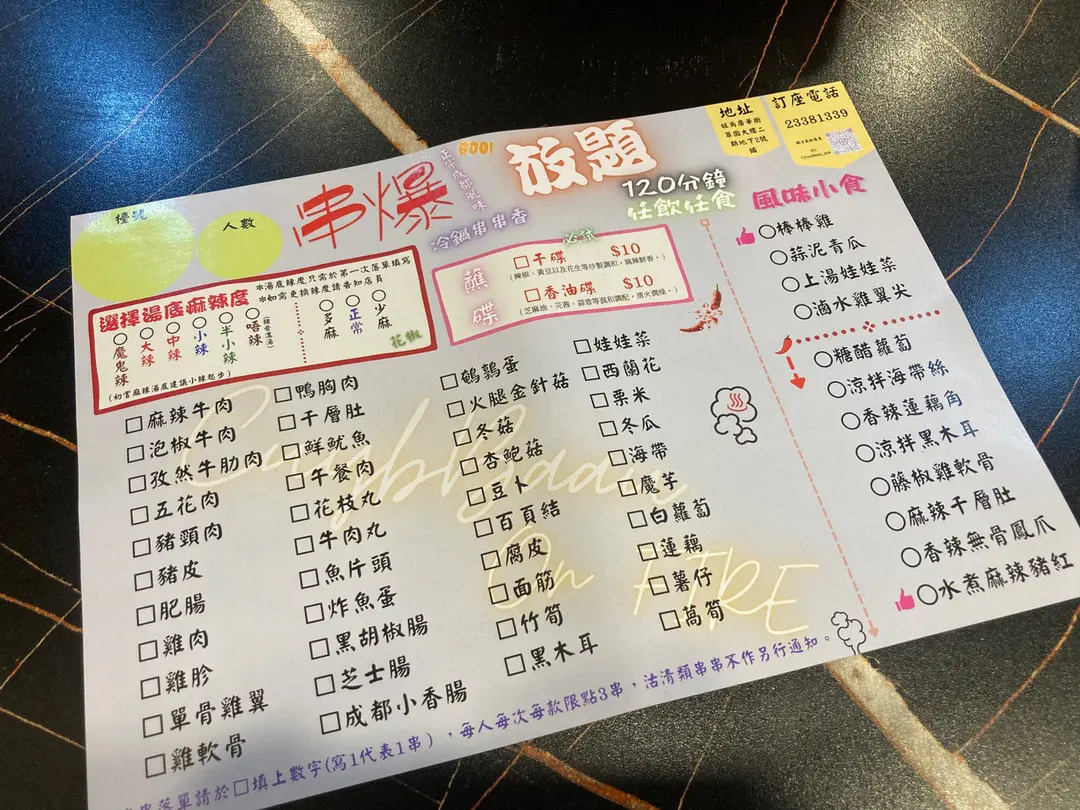 檯號
人數
串爆
正宗成都風味
GOO!
放題
冷鍋串串香
120分鐘
任飲任食
地址
旺角廣華街
翠園大樓二
期地下2號
舖
訂座電話
23381339
選擇湯底麻辣度
*湯底辣度只需於第一次落單填寫
*如需更換辣度請告知店員
○魔鬼辣
○大辣
○中辣
○小辣
○半小辣
○唔辣(豬骨濃湯)
○多麻
○正常
○少麻
花椒
(初嘗麻辣湯底建議小辣起步)
蘸碟
必試
□干碟 $10
(辣椒、黃豆以及花生等炒製調和,麻辣鮮香。)
□香油碟 $10
(芝麻油、芫茜、蒜蓉等混和調配,清火潤燥。)
□麻辣牛肉
□泡椒牛肉
□孜然牛肋肉
□五花肉
□豬頸肉
□豬皮
□肥腸
□雞肉
□雞胗
□單骨雞翼
□雞軟骨
□鴨胸肉
□千層肚
□鮮魷魚
□午餐肉
□花枝丸
□牛肉丸
□魚片頭
□炸魚蛋
□黑胡椒腸
□芝士腸
□成都小香腸
□鵪鶉蛋
□火腿金針菇
□冬菇
□杏鮑菇
□豆卜
□百頁結
□腐皮
□面筋
□竹筍
□黑木耳
□娃娃菜
□西蘭花
□栗米
□冬瓜
□海帶
□魔芋
□白蘿蔔
□蓮藕
□薯仔
□萵筍
風味小食
○棒棒雞
○蒜泥青瓜
○上湯娃娃菜
○滷水雞翼尖
○糖醋蘿蔔
○涼拌海帶絲
○香辣蓮藕角
○涼拌黑木耳
○藤椒雞軟骨
○麻辣千層肚
○香辣無骨鳳爪
○水煮麻辣豬紅
On FIRE
落單請於□填上數字(寫1代表1串),每人每次每款限點3串,沽清類串串不作另行通知。